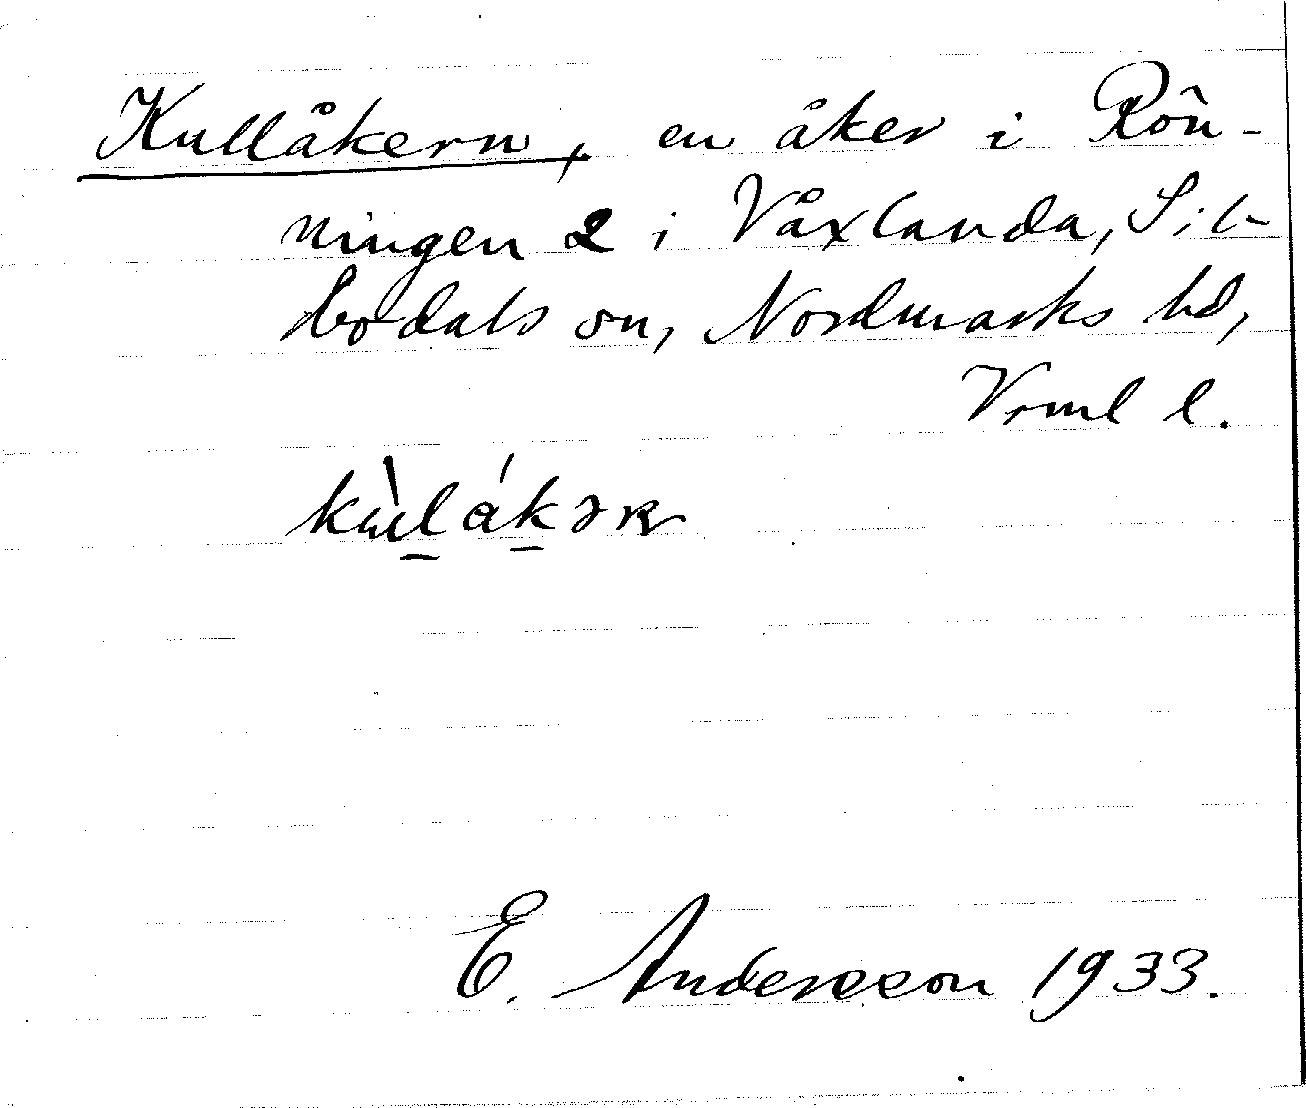 Kullåkern, en åker i Rön-
ningen 2 i Våxlanda, Sil-
bodals sn, Nordmarks hd,
Vrml l.
E. Andersson 1933.